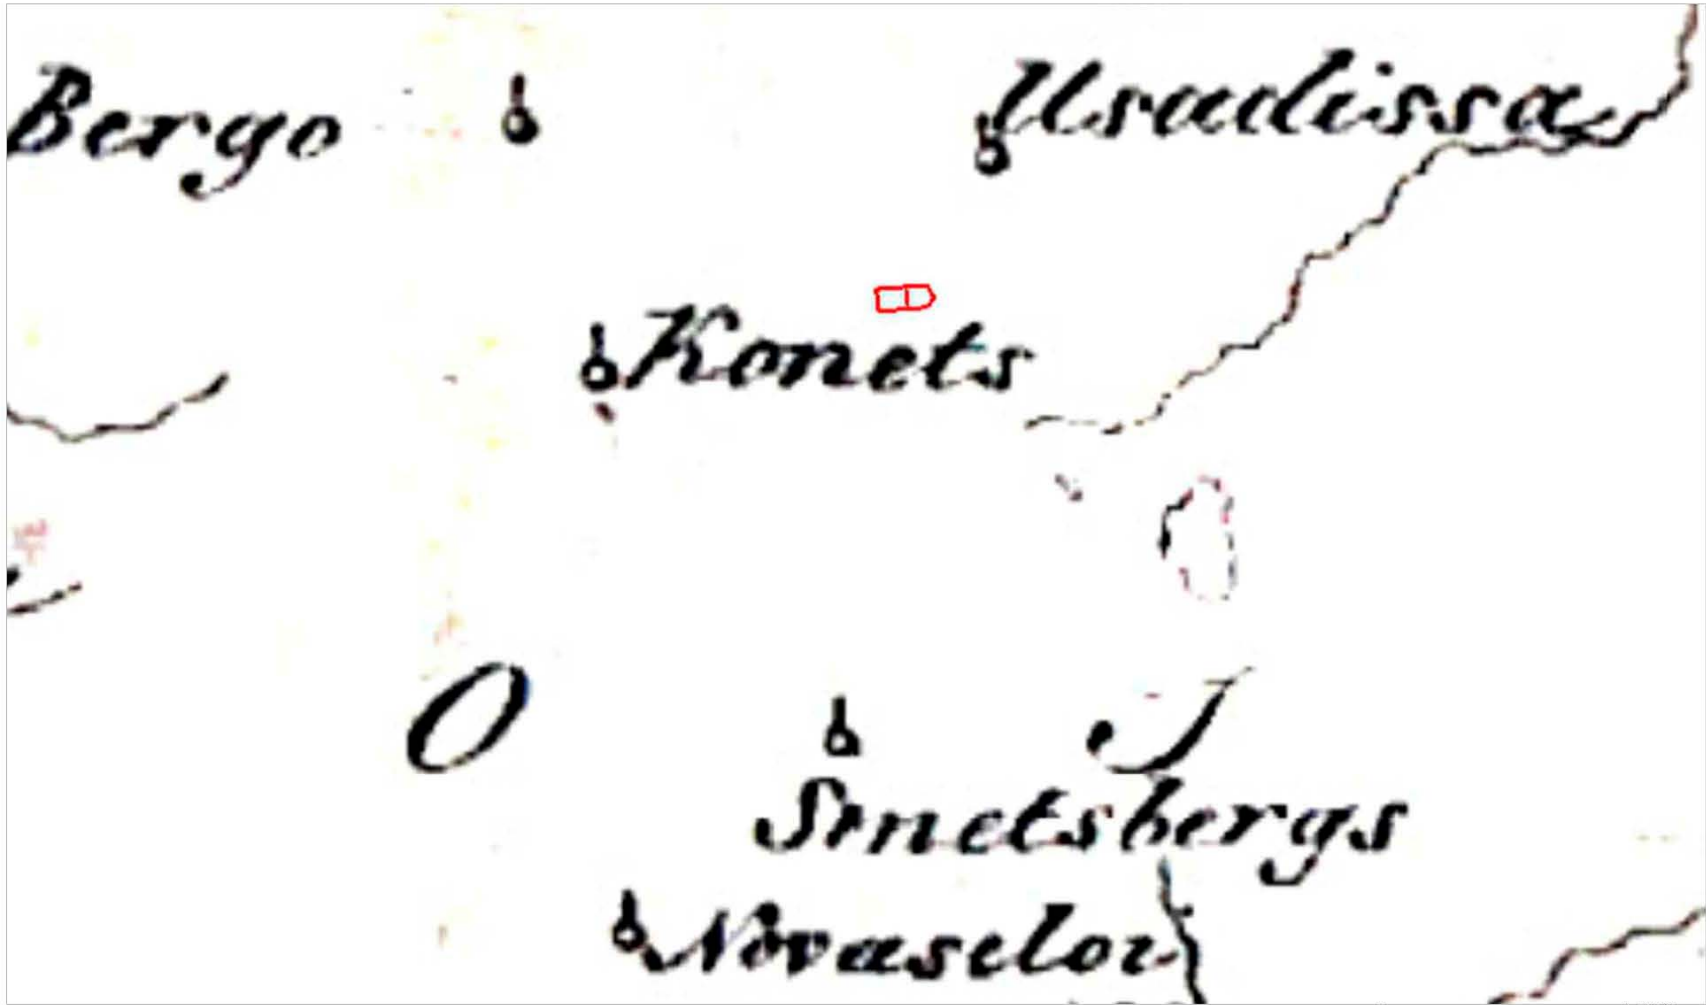 Bergo
Usadissa
Konets
O
J
Smetsbergs
Novaselor